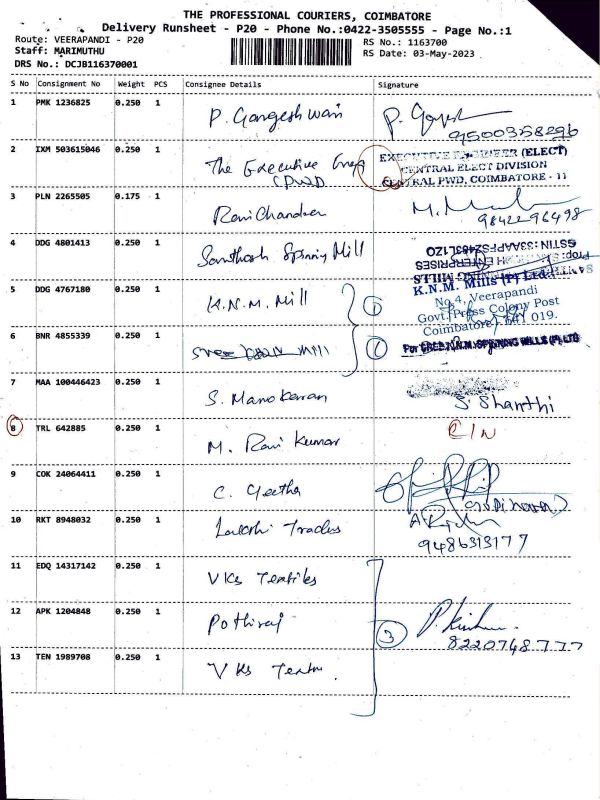 THE PROFESSIONAL COURIERS, COIMBATORE
Delivery Runsheet - P20 - Phone No.:0422-3505555 - Page No.:1
Route: VEERAPANDI - P20
RS No.: 1163700
Staff: MARIMUTHU
RS Date: 03-May-2023
DRS No.: DCJB116370001
S No Consignment No Weight PCS Consignee Details Signature
1 PMK 1236825 0.250 1 P. Gangeshwari
9500358296
2 IXM 503615046 0.250 1 The Executive Engg
CPWD
EXECUTIVE ENGINEER (ELECT)
CENTRAL ELECT DIVISION
CENTRAL PWD, COIMBATORE - 11
3 PLN 2265505 0.175 1 Ravi Chandran
9842296498
4 DDG 4801413 0.250 1 Santhosh Spinning Mill
GSTIN:33AAPFS2483L1ZO
5 DDG 4767180 0.250 1 K.N.M. Mill
K.N.M. Mills (P) Ltd.
No.4, Veerapandi
Govt. Press Colony Post
Coimbatore - 641 019.
6 BNR 4855339 0.250 1 Mill
SPINNING MILLS (P) LTD
7 MAA 100446423 0.250 1 S. Manokaran S. Shanthi
8 TRL 642885 0.250 1 M. Ravi Kumar
9 COK 24064411 0.250 1 C. Geetha
10 RKT 8948032 0.250 1 Lakshi Traders
9486313177
11 EDQ 14317142 0.250 1 VKS Textiles
12 APK 1204848 0.250 1 Pothiraj 3
8220748777
13 TEN 1989708 0.250 1 VKS